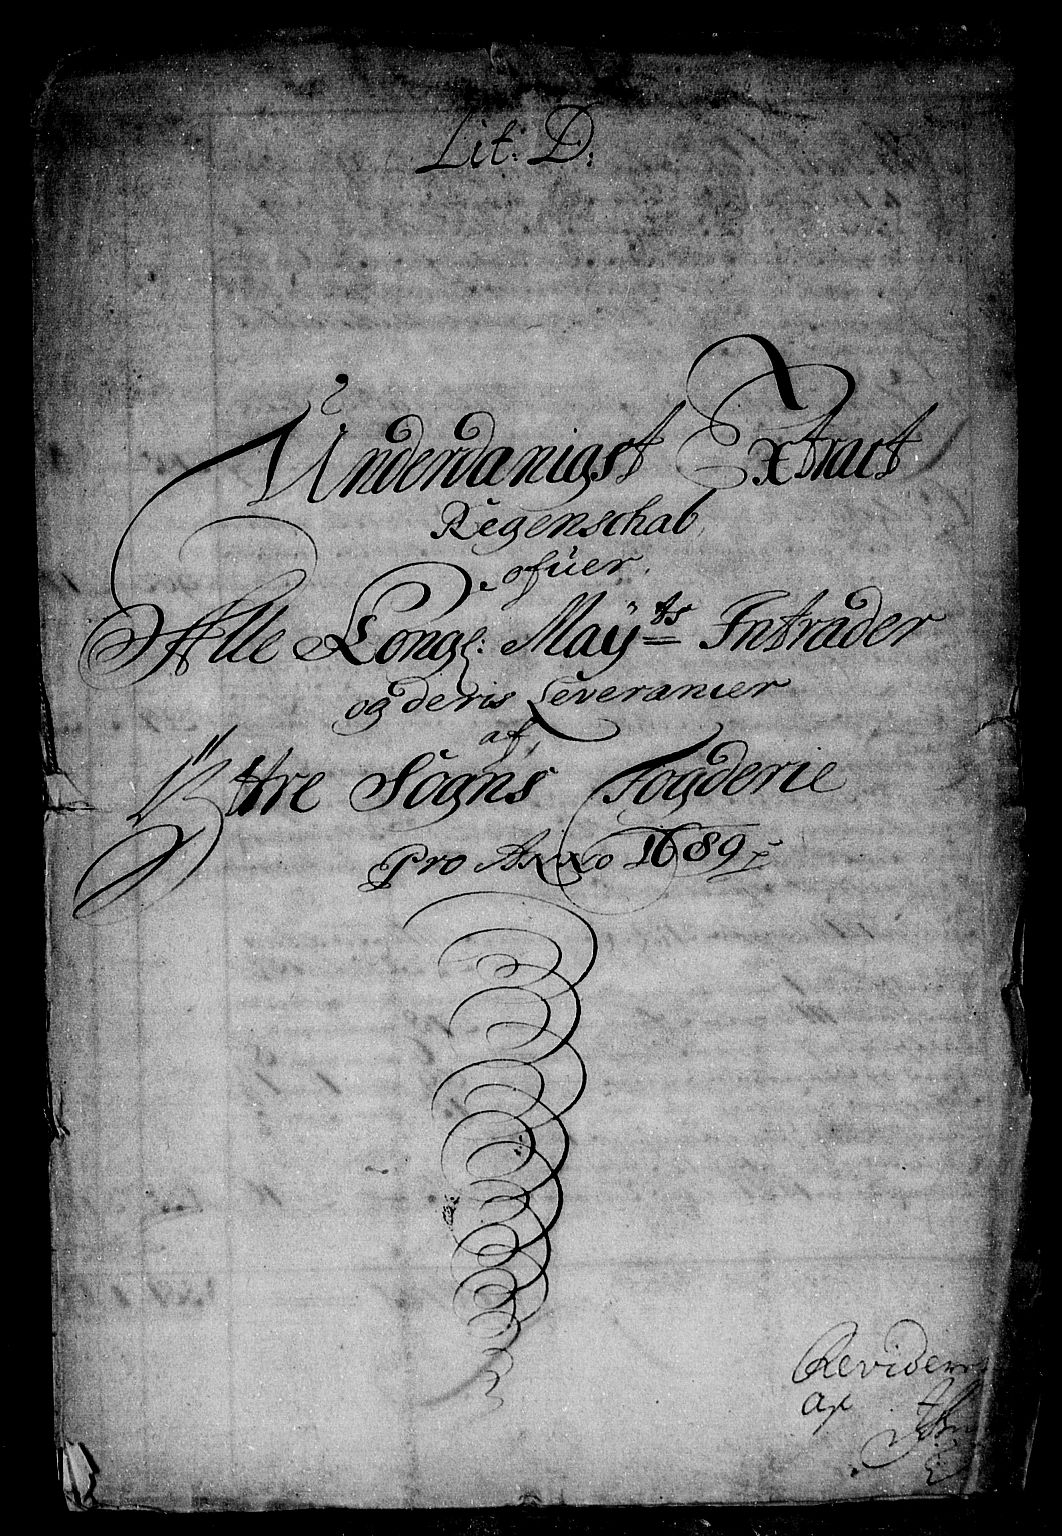 Lit: D:
Underdanigst Extract
Regenschab
ofüer
Alle Kongl: Maÿts Intrader
og deris Leverancier
af
Ÿttre Sogns Fogderie
Pro Anno 1689
Revideret
af